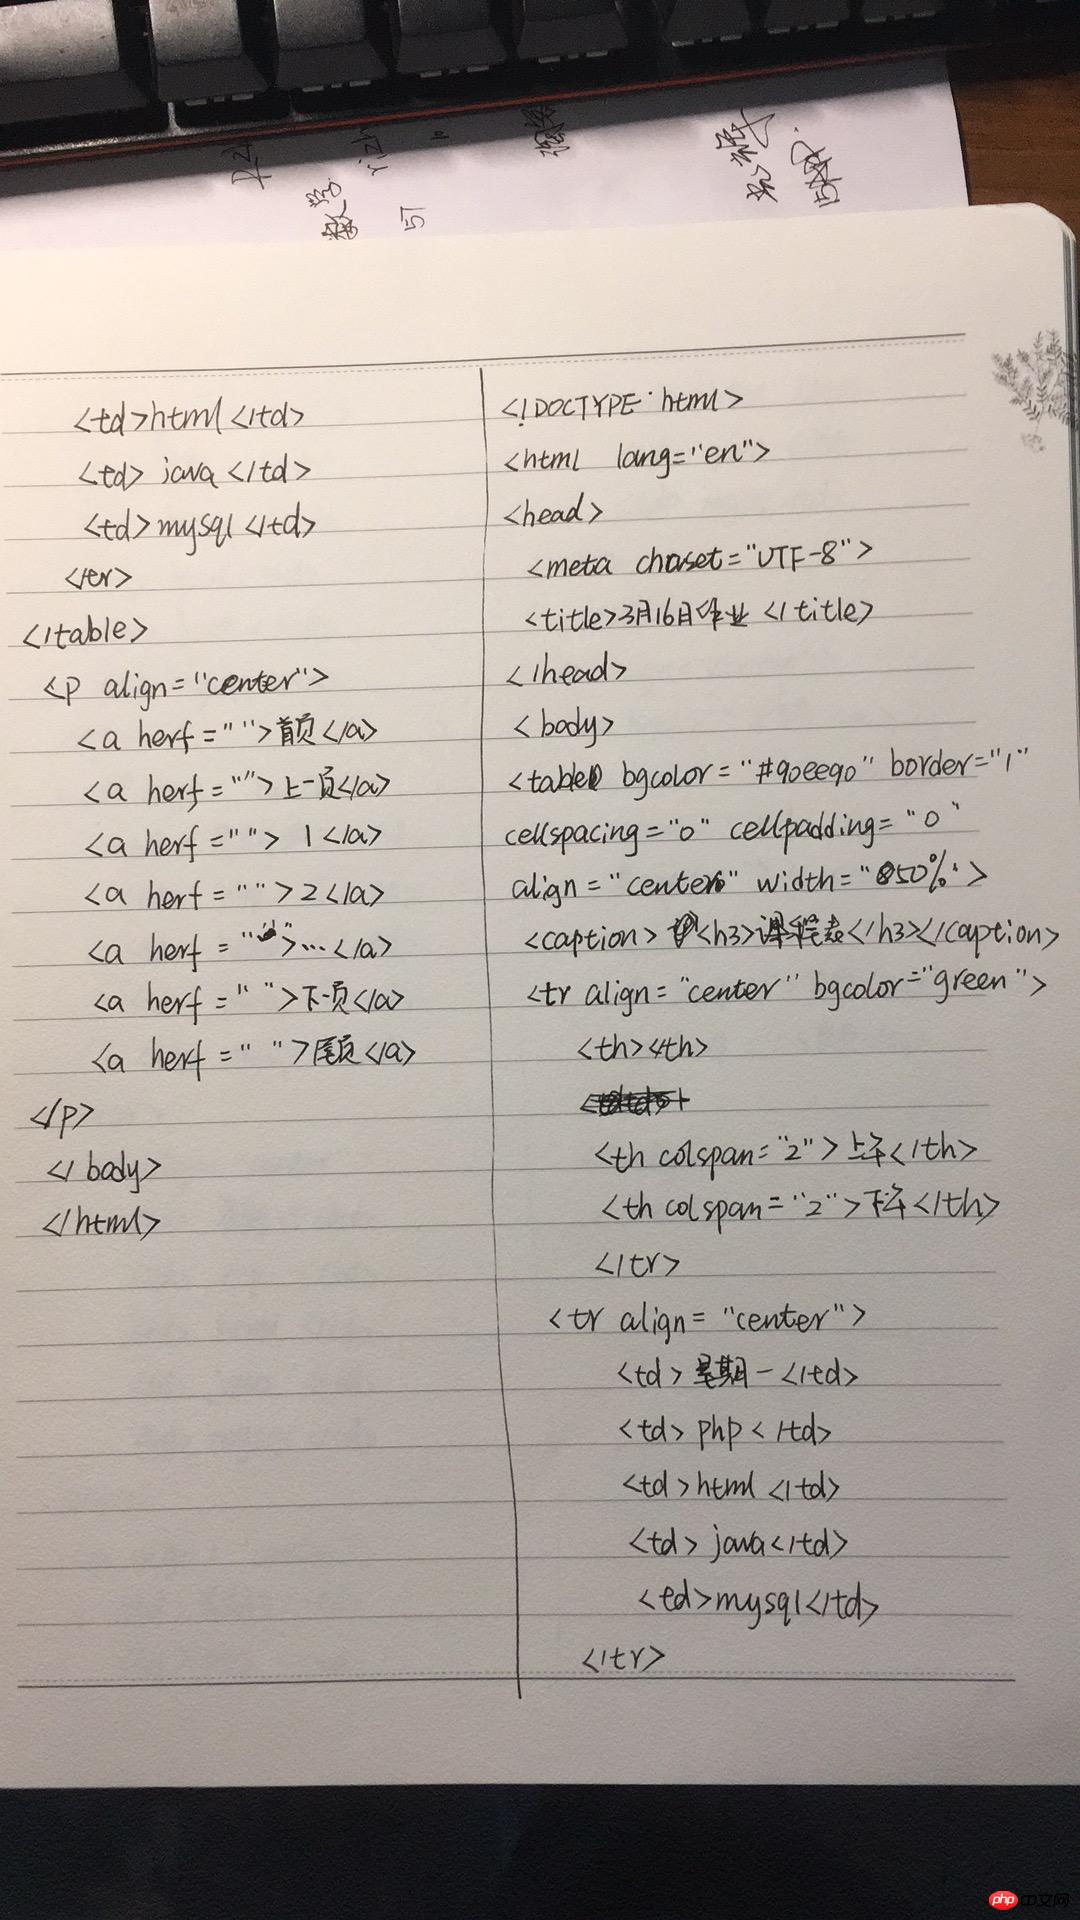 数学
<td>html</td>
<td>java</td>
<td>mysql</td>
</er>
</table>
<p align="center">
<a herf="">首页</a>
<a herf="">上一页</a>
<a herf="">1</a>
<a herf="">2</a>
<a herf="">...</a>
<a herf="">下一页</a>
<a herf="">尾页</a>
</p>
</body>
</html>
<!DOCTYPE html>
<html lang="en">
<head>
<meta chaset="UTF-8">
<title>3月16日作业</title>
</head>
<body>
<table bgcolor="#90ee90" border="1"
cellspacing="0" cellpadding="0"
align="center" width="850%">
<caption><h3>课程表</h3></caption>
<tr align="center" bgcolor="green">
<th></th>
<th colspan="2">上午</th>
<th colspan="2">下午</th>
</tr>
<tr align="center">
<td>星期一</td>
<td>php</td>
<td>html</td>
<td>java</td>
<td>mysql</td>
</tr>
php 中文网